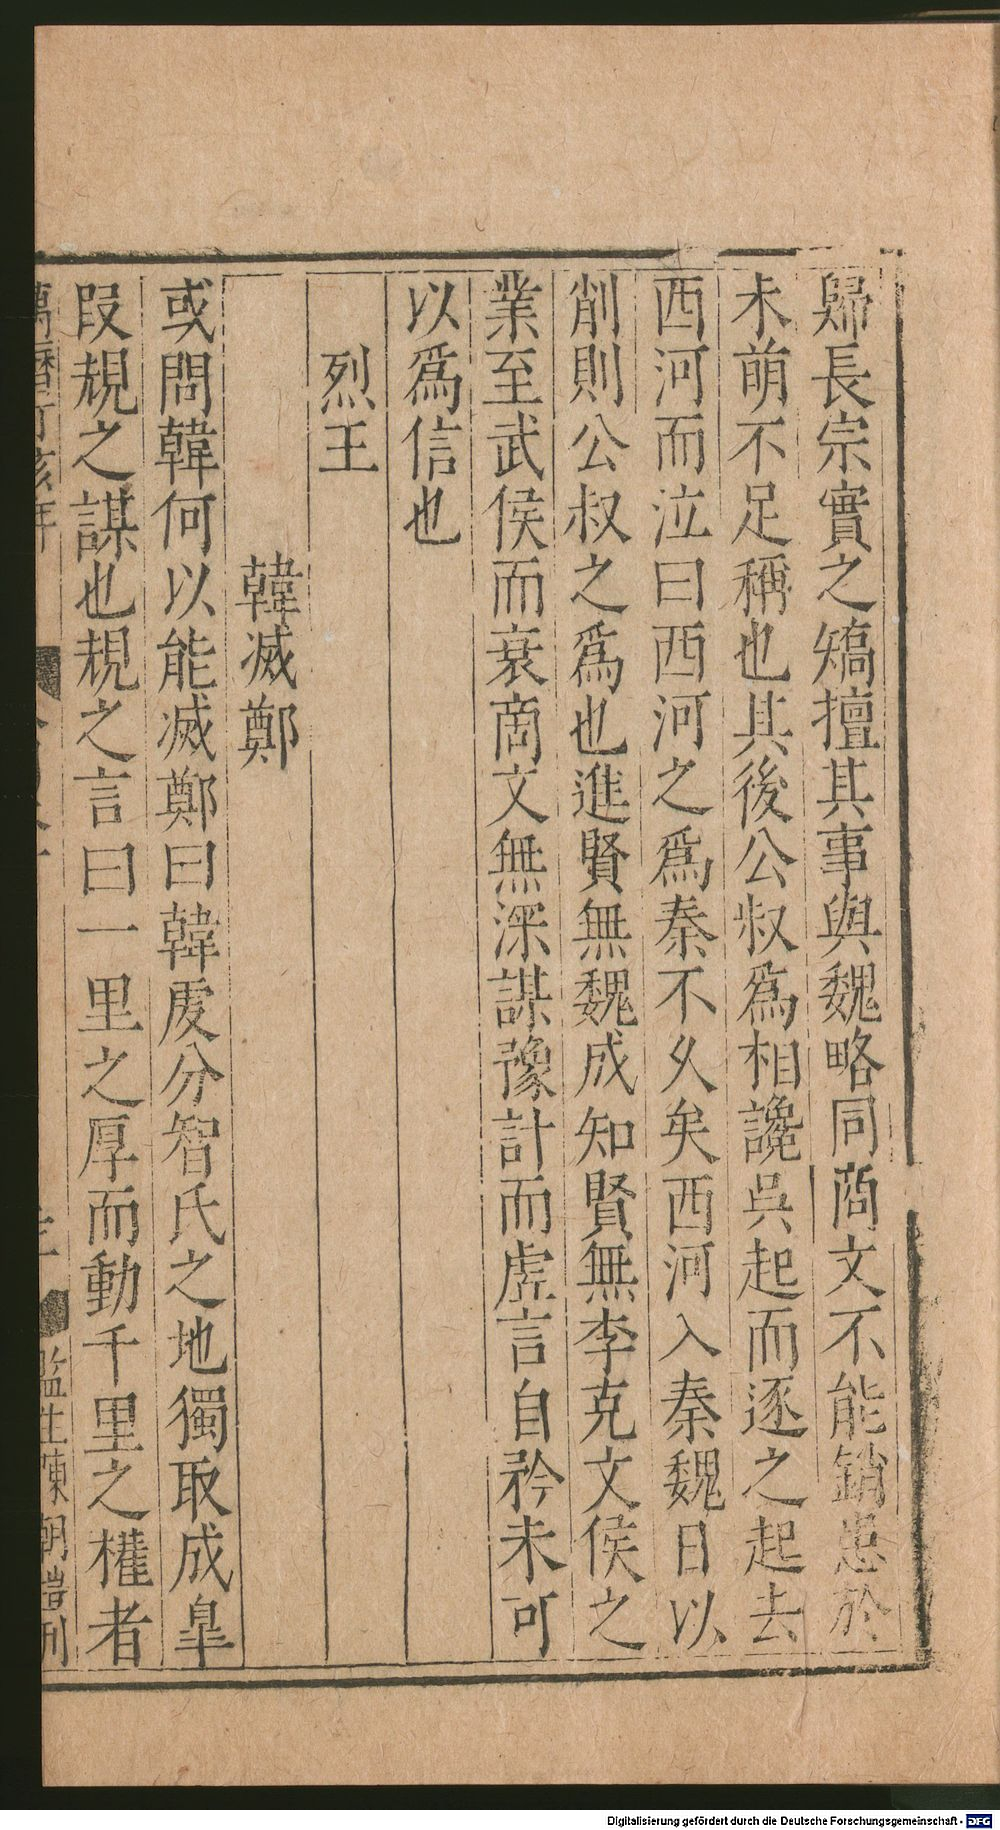 歸長宗實之矯擅其事與魏略同商文不能銷患於
未萌不足稱也其後公叔爲相讒吳起而逐之起去
西河而泣曰西河之爲秦不久矣西河入秦魏日以
削則公叔之爲也進賢無魏成知賢無李克文侯之
業至武侯而衰商文無深謀豫計而虛言自矜未可
以爲信也
烈王
韓滅鄭
或問韓何以能滅鄭曰韓處分智氏之地獨取成臯
段規之謀也規之言曰一里之厚而動千里之權者
萬曆丁亥年
監生陳朝愷刊
Digitalisierung gefördert durch die Deutsche Forschungsgemeinschaft - DFG